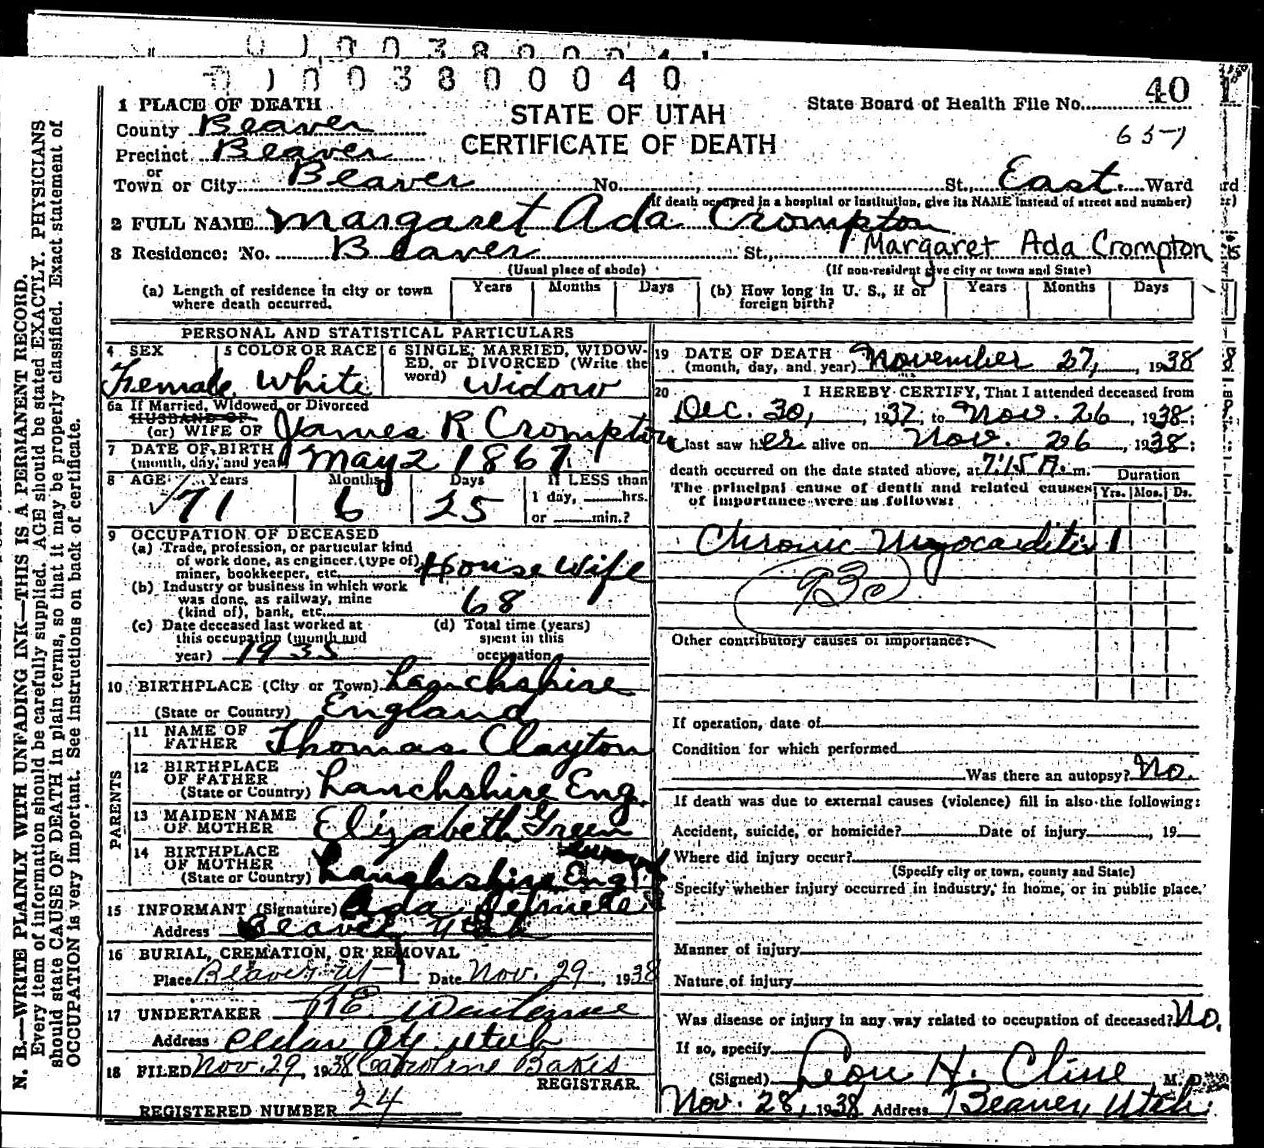 0 1 0 0 3 8 0 0 0 4 0
40
STATE OF UTAH
CERTIFICATE OF DEATH
State Board of Health File No. 40
657
1 PLACE OF DEATH
County Beaver
Precinct Beaver
or
Town or City Beaver No. , St., East Ward
(If death occurred in a hospital or institution, give its NAME instead of street and number)
2 FULL NAME Margaret Ada Crompton
Margaret Ada Crompton
3 Residence: No. Beaver St.,
(Usual place of abode) (If non-resident give city or town and State)
(a) Length of residence in city or town where death occurred. Years Months Days (b) How long in U. S., if of foreign birth? Years Months Days
PERSONAL AND STATISTICAL PARTICULARS
4 SEX 5 COLOR OR RACE 6 SINGLE, MARRIED, WIDOWED, or DIVORCED (Write the word)
Female White Widow
6a If Married, Widowed, or Divorced
HUSBAND OF
(or) WIFE OF James R Crompton
7 DATE OF BIRTH (month, day, and year) May 2 1867
8 AGE Years Months Days If LESS than
71 6 25 1 day, hrs.
or min.?
9 OCCUPATION OF DECEASED
(a) Trade, profession, or particular kind of work done, as engineer (type of) miner, bookkeeper, etc. House Wife
(b) Industry or business in which work was done, as railway, mine (kind of), bank, etc. 68
(c) Date deceased last worked at this occupation (month and year) 1935 (d) Total time (years) spent in this occupation
10 BIRTHPLACE (City or Town) Lanchshire
(State or Country) England
PARENTS
11 NAME OF FATHER Thomas Clayton
12 BIRTHPLACE OF FATHER (State or Country) Lanchshire Eng.
13 MAIDEN NAME OF MOTHER Elizabeth Green
14 BIRTHPLACE OF MOTHER (State or Country) Lanchshire Eng
15 INFORMANT (Signature) Ada
Address Beaver Utah
16 BURIAL, CREMATION, OR REMOVAL
Place Beaver Ut Date Nov. 29, 1938
17 UNDERTAKER
Address Cedar City Utah
18 FILED Nov. 29, 1938 Caroline Bakes
REGISTRAR.
REGISTERED NUMBER 24
19 DATE OF DEATH (month, day, and year) November 27, 1938
20 I HEREBY CERTIFY, That I attended deceased from
Dec. 30, 1937, to Nov. 26, 1938;
I last saw her alive on Nov. 26, 1938;
death occurred on the date stated above, at 7:15 A. m.
Duration
The principal cause of death and related causes of importance were as follows: Yrs. Mos. Ds.
Chronic Myocarditis 1
93c
Other contributory causes of importance:
If operation, date of
Condition for which performed
Was there an autopsy? No.
If death was due to external causes (violence) fill in also the following:
Accident, suicide, or homicide? Date of injury , 19
Where did injury occur?
(Specify city or town, county and State)
Specify whether injury occurred in industry, in home, or in public place.
Manner of injury
Nature of injury
Was disease or injury in any way related to occupation of deceased? No.
If so, specify
(Signed) Leon H. Cline M. D.
Nov. 28, 1938 Address Beaver, Utah.
N. B.—WRITE PLAINLY WITH UNFADING INK—THIS IS A PERMANENT RECORD.
Every item of information should be carefully supplied. AGE should be stated EXACTLY. PHYSICIANS
should state CAUSE OF DEATH in plain terms, so that it may be properly classified. Exact statement of
OCCUPATION is very important. See instructions on back of certificate.